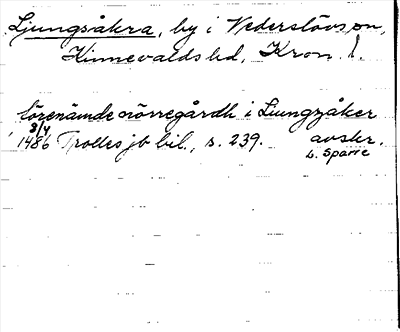 Ljungsåkra, by i Vederslövs sn,
Kinnevalds hd, Kron. l.
förenämde nörregårdh i Liungzåker
3/4
1486 Trolles jb bil., s. 239. avskr.
L. Sparre